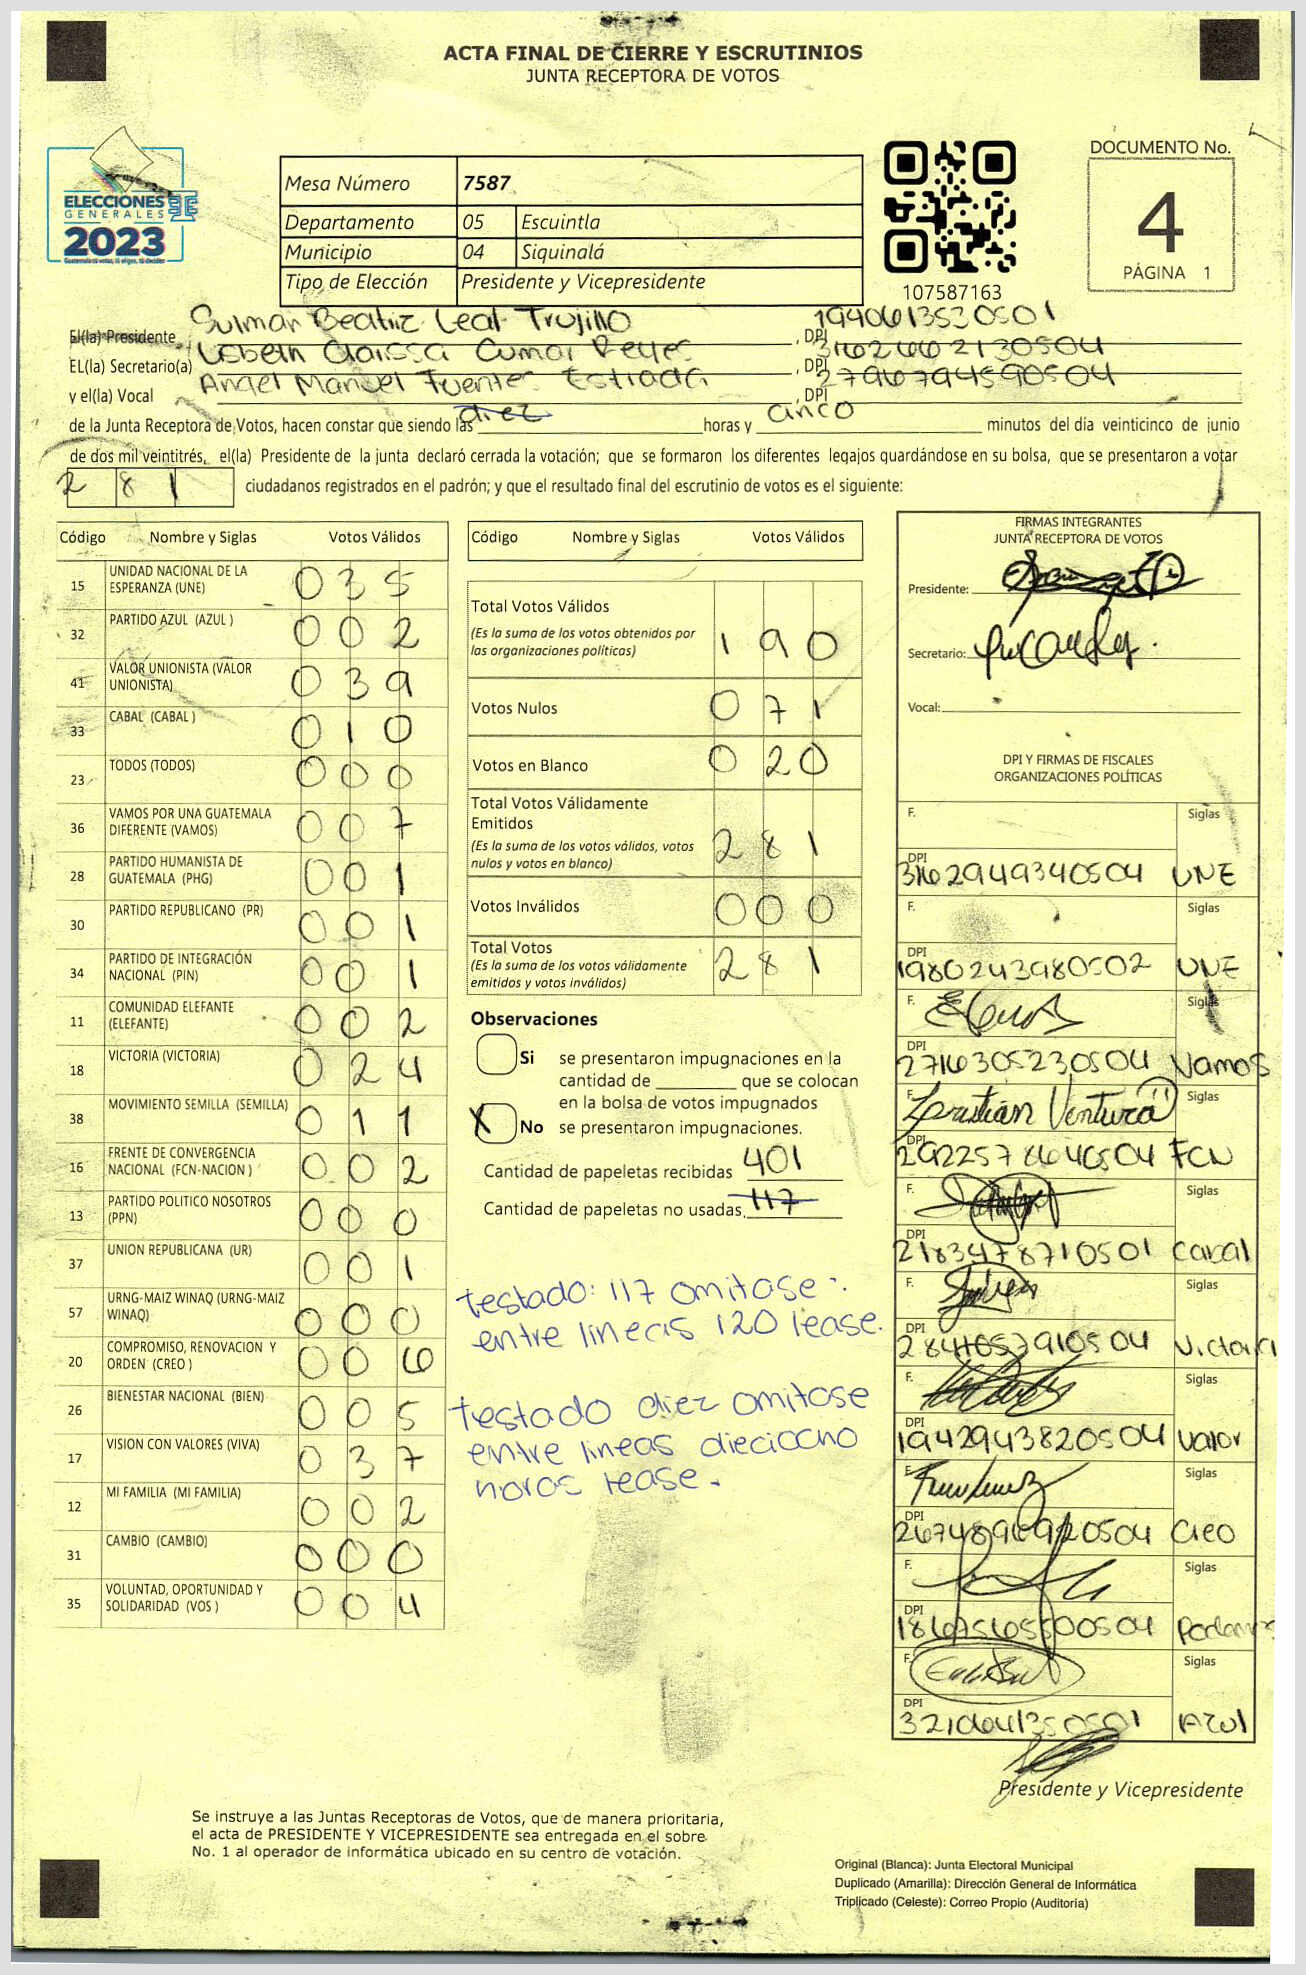 ACTA FINAL DE CIERRE Y ESCRUTINIOS
JUNTA RECEPTORA DE VOTOS
ELECCIONES
GENERALES
2023
Mesa Número 7587
Departamento 05 Escuintla
Municipio 04 Siquinalá
Tipo de Elección Presidente y Vicepresidente
107587163
DOCUMENTO No.
4
PÁGINA 1
El(la) Presidente Sulmar Beatriz Leal Trujillo, DPI 1940613530501
EL(la) Secretario(a) Lisbeth Clarissa Cumar Reyes, DPI 3162662130504
y el(la) Vocal Angel Manuel Fuentes Estrada, DPI 2796794590504
de la Junta Receptora de Votos, hacen constar que siendo las diez horas y cinco minutos del día veinticinco de junio
de dos mil veintitrés, el(la) Presidente de la junta declaró cerrada la votación; que se formaron los diferentes legajos guardándose en su bolsa, que se presentaron a votar
281 ciudadanos registrados en el padrón; y que el resultado final del escrutinio de votos es el siguiente:
Código Nombre y Siglas Votos Válidos
15 UNIDAD NACIONAL DE LA ESPERANZA (UNE) 035
32 PARTIDO AZUL (AZUL ) 002
41 VALOR UNIONISTA (VALOR UNIONISTA) 039
33 CABAL (CABAL ) 010
23 TODOS (TODOS) 000
36 VAMOS POR UNA GUATEMALA DIFERENTE (VAMOS) 007
28 PARTIDO HUMANISTA DE GUATEMALA (PHG) 001
30 PARTIDO REPUBLICANO (PR) 001
34 PARTIDO DE INTEGRACIÓN NACIONAL (PIN) 001
11 COMUNIDAD ELEFANTE (ELEFANTE) 002
18 VICTORIA (VICTORIA) 024
38 MOVIMIENTO SEMILLA (SEMILLA) 011
16 FRENTE DE CONVERGENCIA NACIONAL (FCN-NACION ) 002
13 PARTIDO POLITICO NOSOTROS (PPN) 000
37 UNION REPUBLICANA (UR) 001
57 URNG-MAIZ WINAQ (URNG-MAIZ WINAQ) 000
20 COMPROMISO, RENOVACION Y ORDEN (CREO ) 006
26 BIENESTAR NACIONAL (BIEN) 005
17 VISION CON VALORES (VIVA) 037
12 MI FAMILIA (MI FAMILIA) 002
31 CAMBIO (CAMBIO) 000
35 VOLUNTAD, OPORTUNIDAD Y SOLIDARIDAD (VOS ) 004
Código Nombre y Siglas Votos Válidos
Total Votos Válidos 190
(Es la suma de los votos obtenidos por
las organizaciones políticas)
Votos Nulos 071
Votos en Blanco 020
Total Votos Válidamente
Emitidos 281
(Es la suma de los votos válidos, votos
nulos y votos en blanco)
Votos Inválidos 000
Total Votos 281
(Es la suma de los votos válidamente
emitidos y votos inválidos)
Observaciones
Si se presentaron impugnaciones en la
cantidad de ________ que se colocan
en la bolsa de votos impugnados
X No se presentaron impugnaciones.
Cantidad de papeletas recibidas 401
Cantidad de papeletas no usadas 117
testado: 117 omitase.
entre lineas 120 lease.
testado diez omitase
entre lineas dieciocho
horas lease.
FIRMAS INTEGRANTES
JUNTA RECEPTORA DE VOTOS
Presidente:
Secretario:
Vocal:
DPI Y FIRMAS DE FISCALES
ORGANIZACIONES POLÍTICAS
F. Siglas
DPI 3162949340504 UNE
F. Siglas
DPI 1980243980502 UNE
F. Siglas
DPI 2716305230504 Vamos
F. Cristian Ventura Siglas
DPI 2922578640504 FCN
F. Siglas
DPI 2183478710501 Cabal
F. Siglas
DPI 2841057910504 Victoria
F. Siglas
DPI 1942943820504 Valor
F. Siglas
DPI 2674896920504 Creo
F. Siglas
DPI 1867565500504
F. Siglas
DPI 3210641350501 Azul
Presidente y Vicepresidente
Se instruye a las Juntas Receptoras de Votos, que de manera prioritaria,
el acta de PRESIDENTE Y VICEPRESIDENTE sea entregada en el sobre
No. 1 al operador de informática ubicado en su centro de votación.
Original (Blanca): Junta Electoral Municipal
Duplicado (Amarilla): Dirección General de Informática
Triplicado (Celeste): Correo Propio (Auditoría)